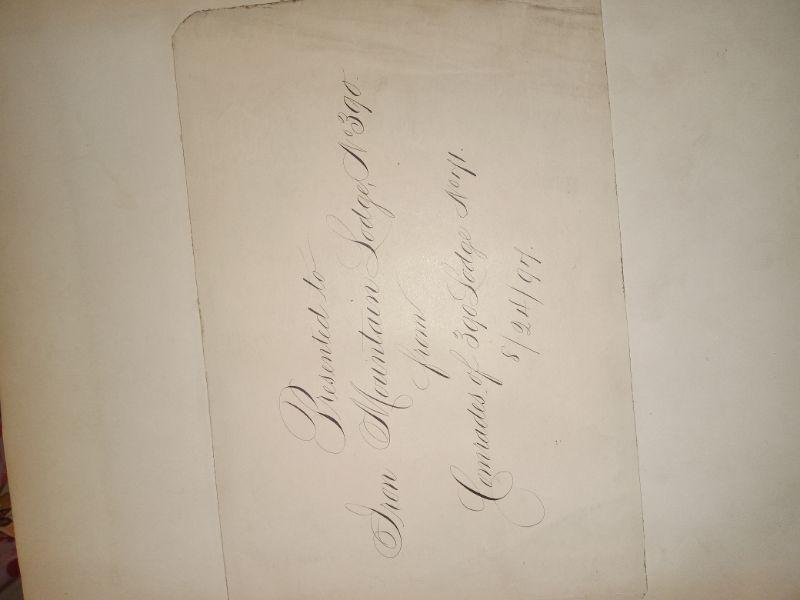 Presented to
Iron Mountain Lodge, No 390.
from
Comrades of 390 Lodge No 71.
8/24/97.